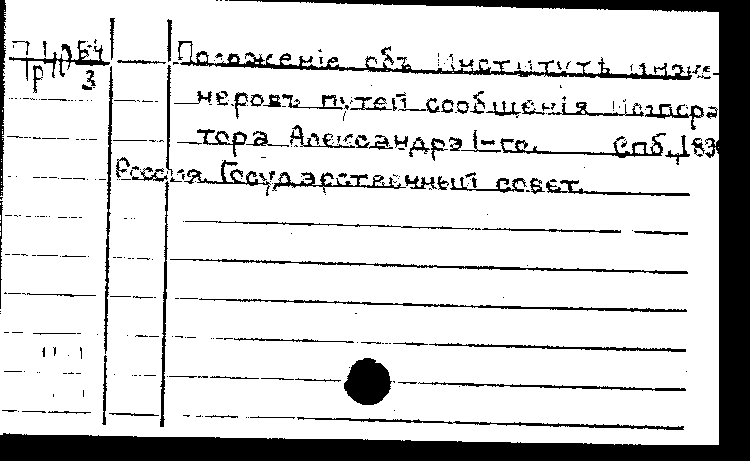 Положенiе объ Институтѣ инже-
неровъ путей сообщенiя Импера
тора Александра I-го. Спб.,
Россия. Государственный совет.